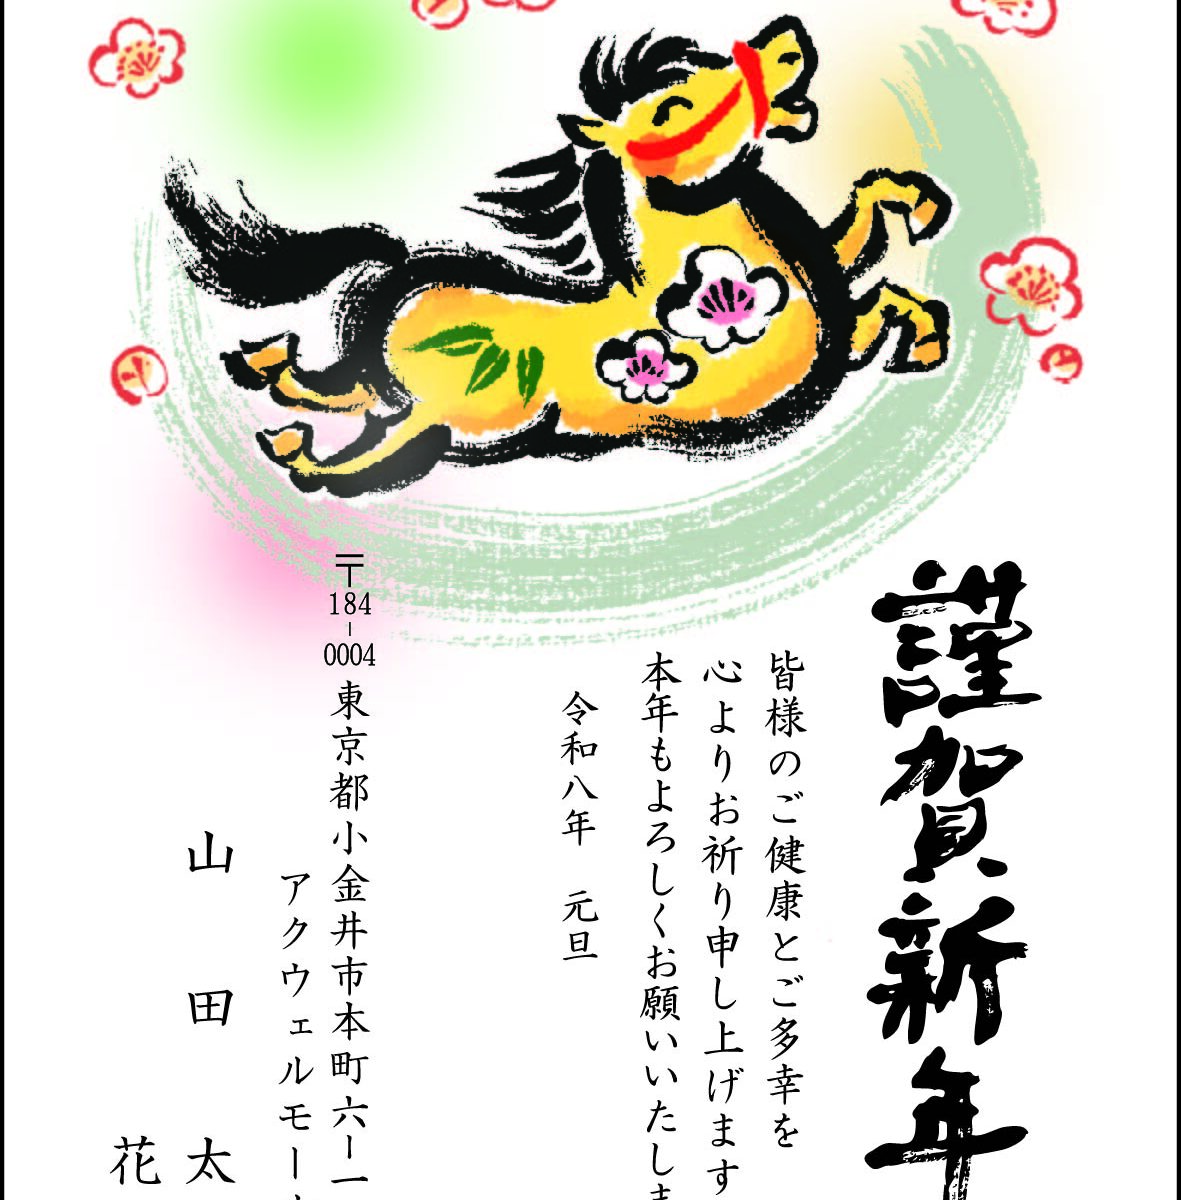 謹賀新年
皆様のご健康とご多幸を
心よりお祈り申し上げます
本年もよろしくお願いいたしま
令和八年 元旦
〒184-0004 東京都小金井市本町六ー一
アクウェルモー
山田 太
花